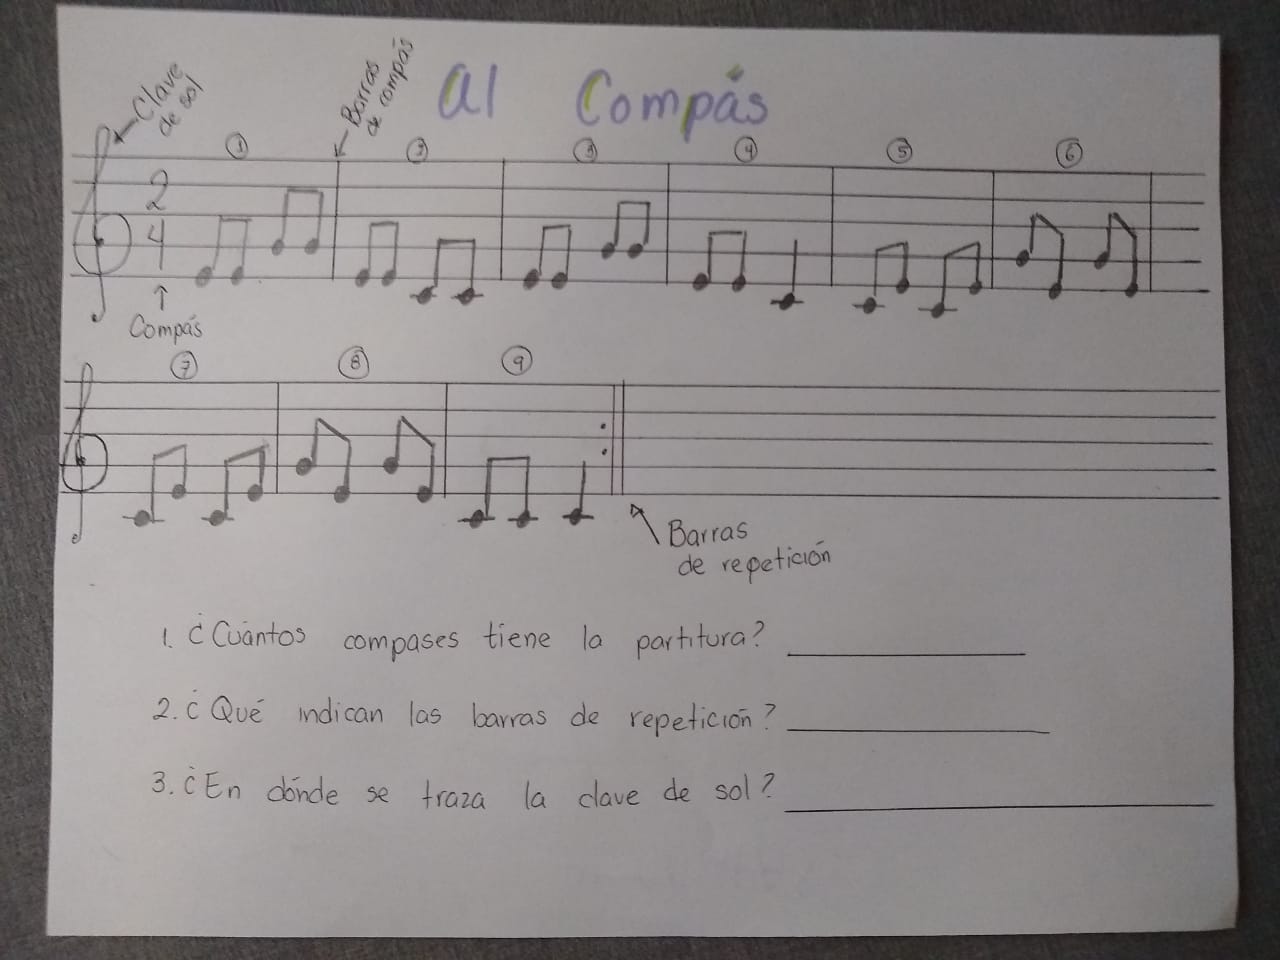 Clave
de sol
Barras
de compás
al Compás
① ② ③ ④ ⑤ ⑥
2
4
Compás
⑦ ⑧ ⑨
Barras
de repetición
1. ¿Cuántos compases tiene la partitura?
2. ¿Qué indican las barras de repetición?
3. ¿En dónde se traza la clave de sol?